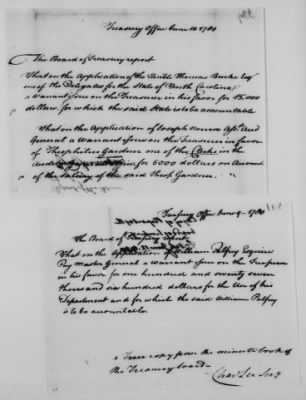 Treasury Office June 10. 1780
The Board of Treasury report
That on the Application of the Honble Thomas Burke Esq
one of the Delegates for the State of North Carolina
a warrant issue on the Treasurer in his favor for 15,000
dollars. for which the said State is to be accountable
That on the Application of Joseph Nourse Asst Aud
General a warrant issue on the Treasurer in favor
of Theophilus Gardner one of the Clerks in the
for 5000 dollars on Account
of the Salary of the said Theops Gardner.
Treasury Office June 9. 1780
The Board of Treasury report
That on the Application of William Palfrey Esquire
Pay master General a warrant issue on the Treasurer
in his favor for one hundred and twenty seven
thousand six hundred dollars for the Use of his
Department and for which the said William Palfrey
is to be accountable.
a true copy from the minute book of
the Treasury board
Chas Lee Secy